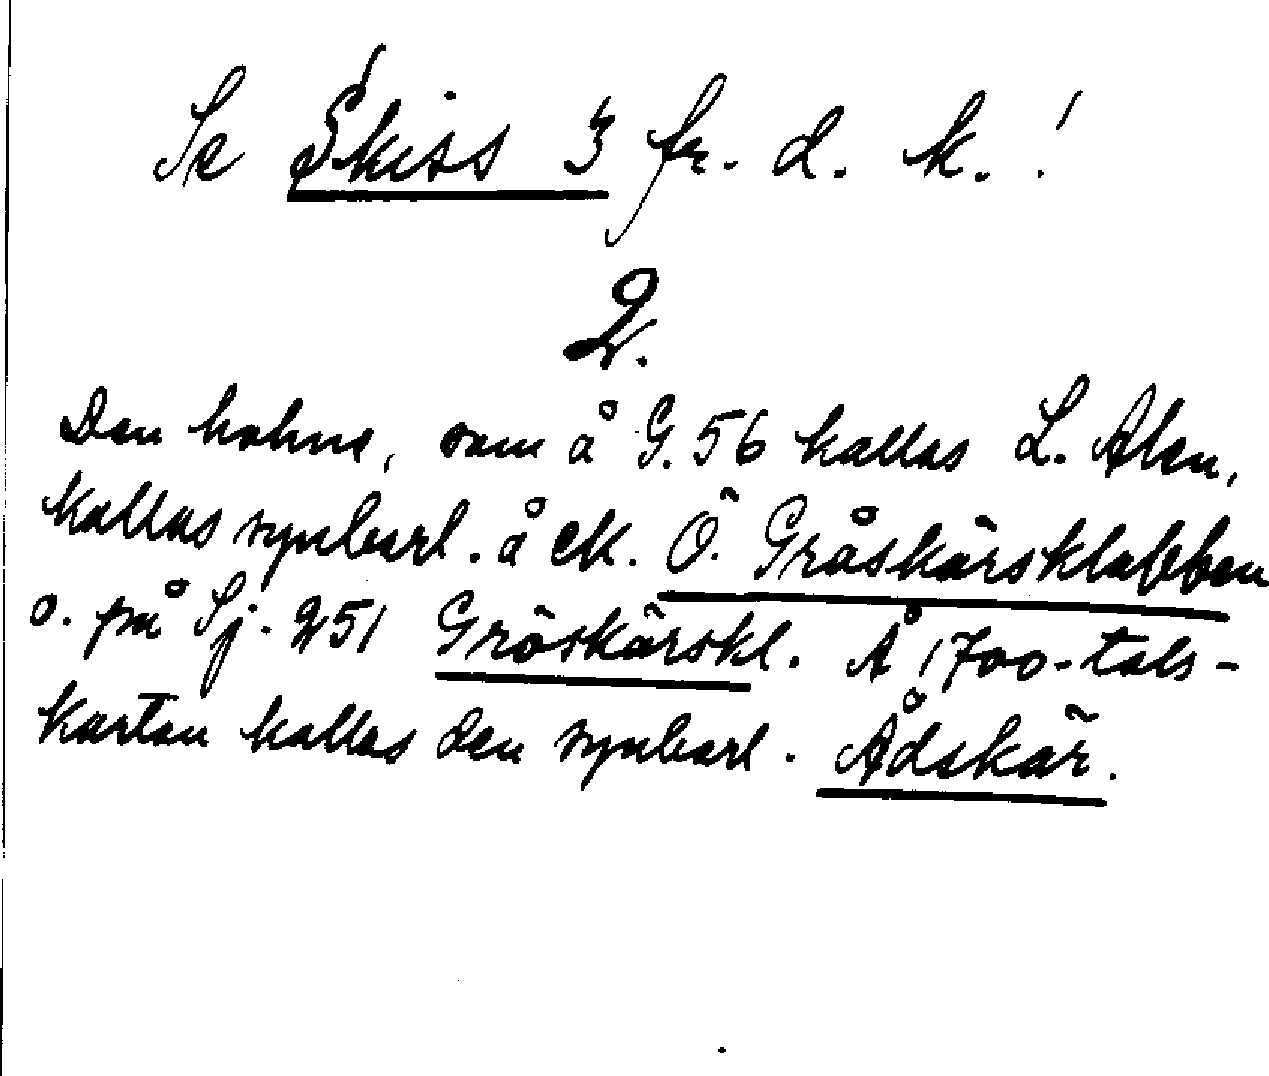 Se Skiss 3 fr. d. k.!
2.
Den holme, som å G. 56 kallas L. Alen,
kallas synbarl. å EK. Ö. Gråskärsklabben
o. på Sj. 251 Gröskärskl. Å 1700-tals-
kartan kallas den synbarl. Ådskär.